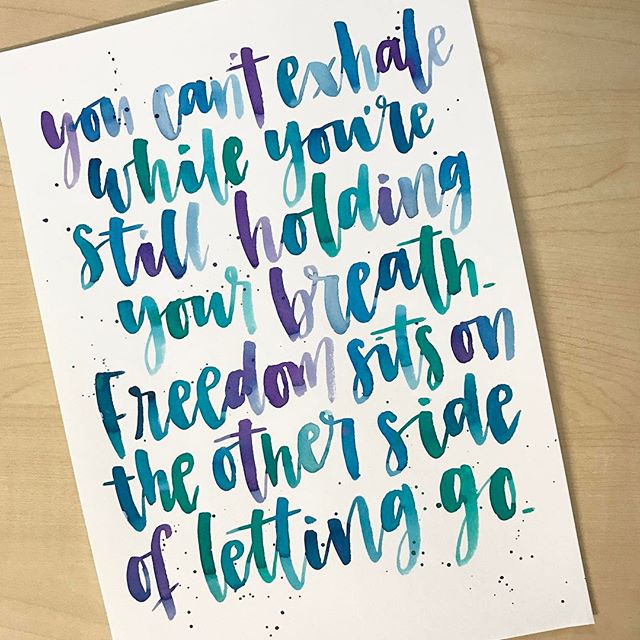 you can't exhale
while you're
still holding
your breath.
Freedom sits on
the other side
of letting go.